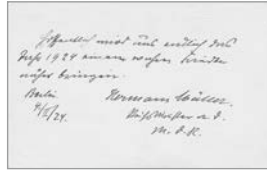 Hoffentlich wird uns endlich das
Jahr 1924 einem wahren Frieden
näher bringen.
Berlin
Hermann Müller.
Reichskanzler a. D.
M. d. R.